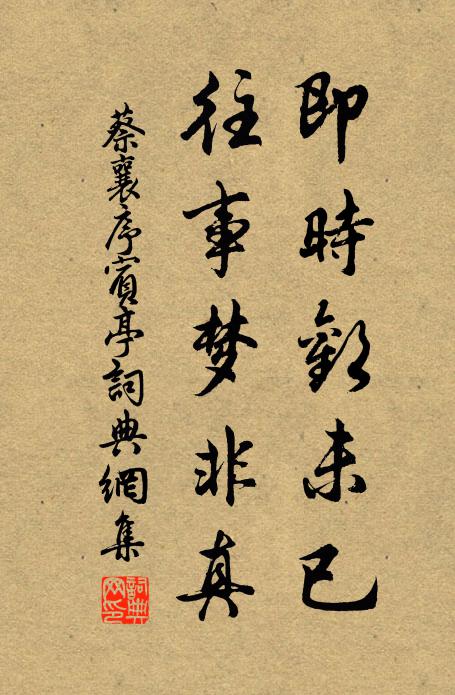 即時歡未已
往事梦非真
蔡襄序賓亭詞典網集
詞典网印